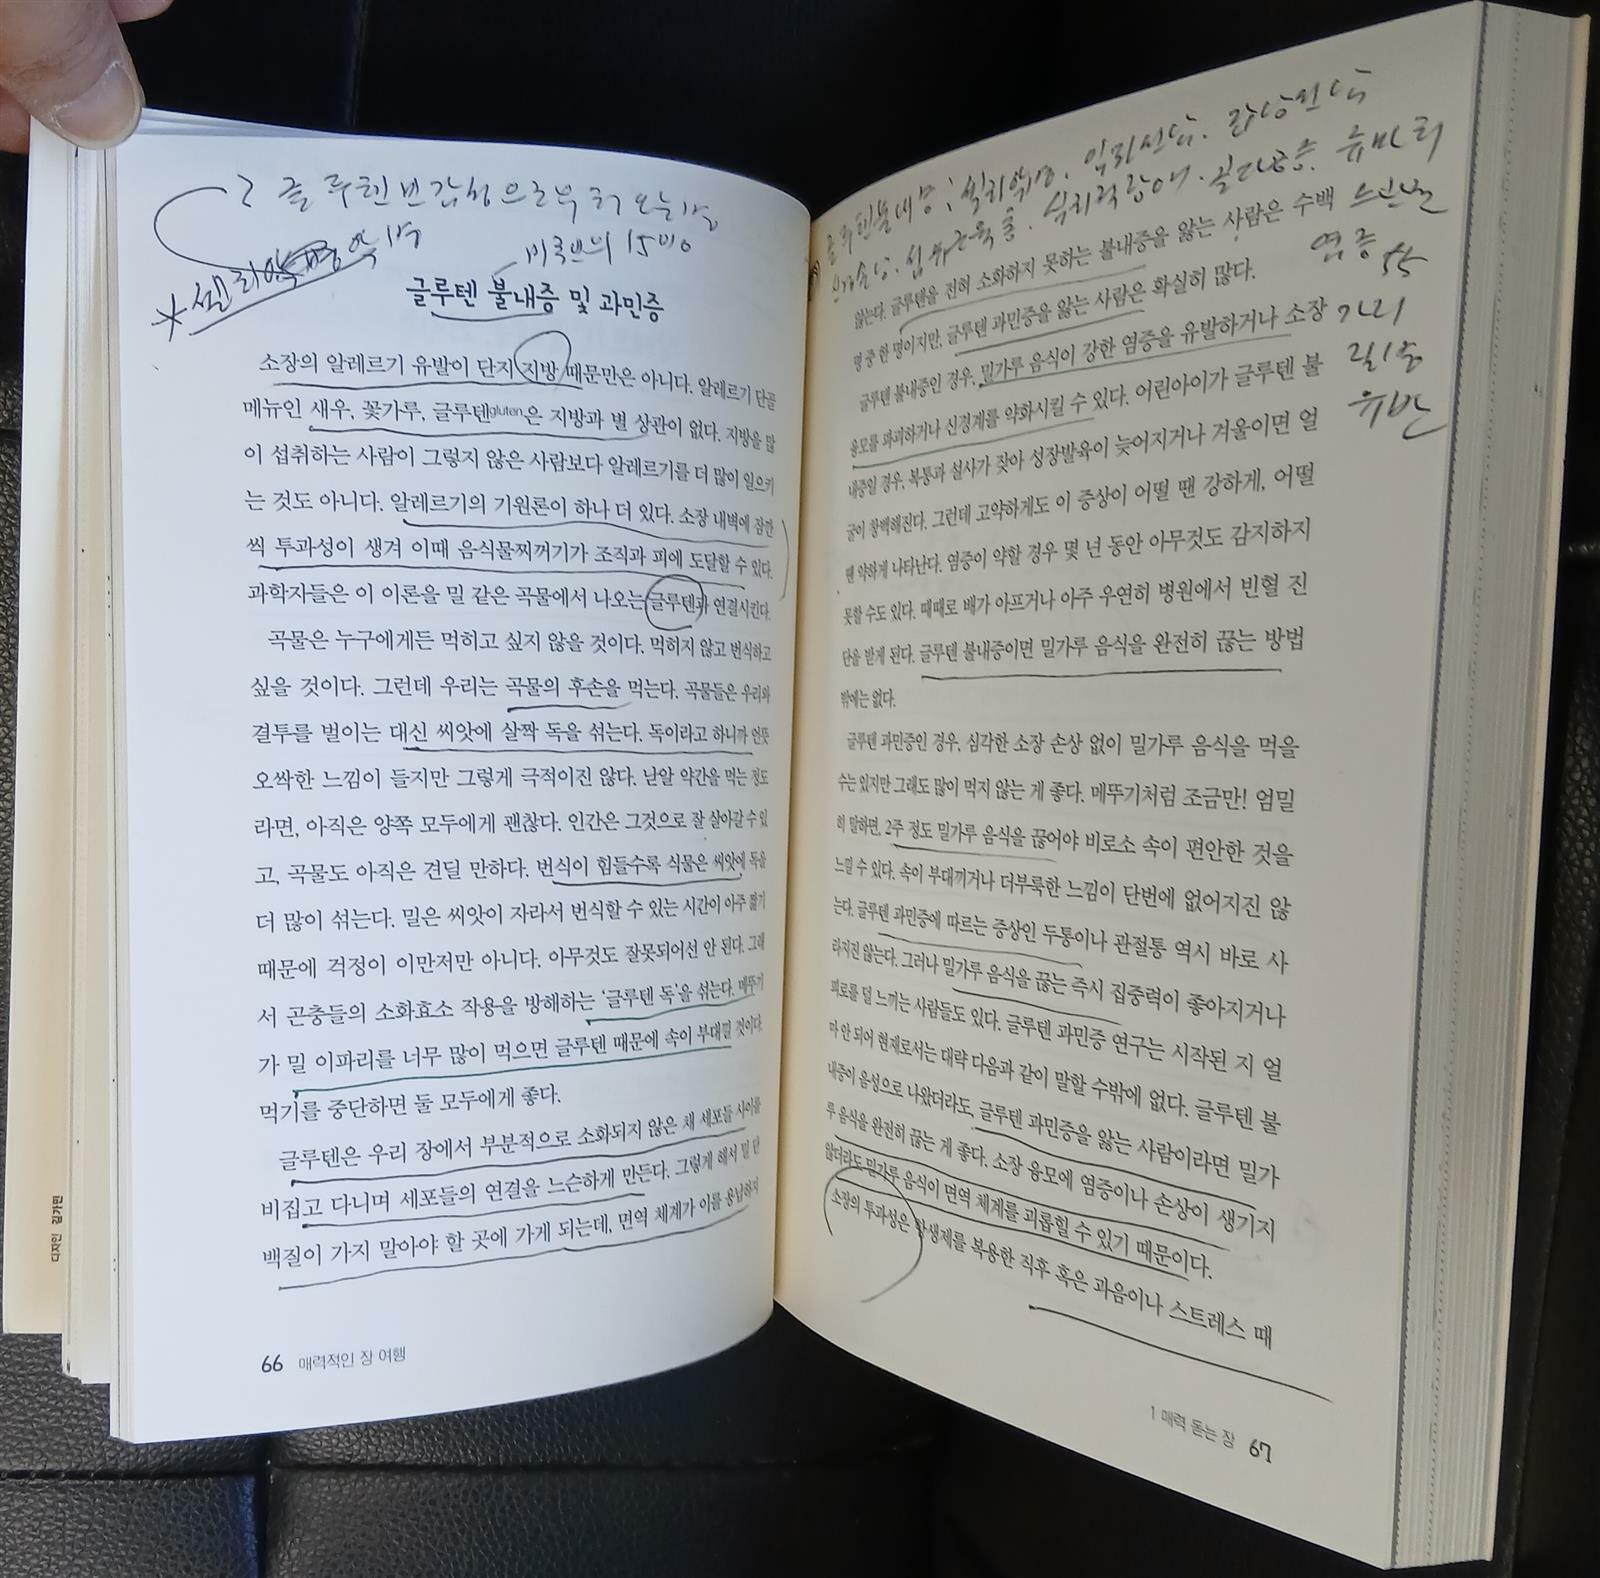 글루텐 민감성으로부터 오는 병
미국인의 15%
글루텐 불내증 및 과민증
소장의 알레르기 유발이 단지 지방 때문만은 아니다. 알레르기 단골
메뉴인 새우, 꽃가루, 글루텐gluten은 지방과 별 상관이 없다. 지방을 많
이 섭취하는 사람이 그렇지 않은 사람보다 알레르기를 더 많이 일으키
는 것도 아니다. 알레르기의 기원론이 하나 더 있다. 소장 내벽에 잠깐
씩 투과성이 생겨 이때 음식물찌꺼기가 조직과 피에 도달할 수 있다.
과학자들은 이 이론을 밀 같은 곡물에서 나오는 글루텐과 연결시킨다.
곡물은 누구에게든 먹히고 싶지 않을 것이다. 먹히지 않고 번식하고
싶을 것이다. 그런데 우리는 곡물의 후손을 먹는다. 곡물들은 우리와
결투를 벌이는 대신 씨앗에 살짝 독을 섞는다. 독이라고 하니까 언뜻
오싹한 느낌이 들지만 그렇게 극적이진 않다. 낟알 약간을 먹는 정도
라면, 아직은 양쪽 모두에게 괜찮다. 인간은 그것으로 잘 살아갈 수 있
고, 곡물도 아직은 견딜 만하다. 번식이 힘들수록 식물은 씨앗에 독을
더 많이 섞는다. 밀은 씨앗이 자라서 번식할 수 있는 시간이 아주 짧기
때문에 걱정이 이만저만 아니다. 아무것도 잘못되어선 안 된다. 그래
서 곤충들의 소화효소 작용을 방해하는 '글루텐 독'을 섞는다. 메뚜기
가 밀 이파리를 너무 많이 먹으면 글루텐 때문에 속이 부대낄 것이다.
먹기를 중단하면 둘 모두에게 좋다.
글루텐은 우리 장에서 부분적으로 소화되지 않은 채 세포들 사이를
비집고 다니며 세포들의 연결을 느슨하게 만든다. 그렇게 해서 밀 단
백질이 가지 말아야 할 곳에 가게 되는데, 면역 체계가 이를 용납하지
66 매력적인 장 여행
디자인 김가민
글루텐불내성: 골다공증. 류마티
스관절
염증
유발
않는다. 글루텐을 전혀 소화하지 못하는 불내증을 앓는 사람은 수백
명 중 한 명이지만, 글루텐 과민증을 앓는 사람은 확실히 많다.
글루텐 불내증인 경우, 밀가루 음식이 강한 염증을 유발하거나 소장
융모를 파괴하거나 신경계를 약화시킬 수 있다. 어린아이가 글루텐 불
내증일 경우, 복통과 설사가 잦아 성장발육이 늦어지거나 겨울이면 얼
굴이 창백해진다. 그런데 고약하게도 이 증상이 어떨 땐 강하게, 어떨
땐 약하게 나타난다. 염증이 약할 경우 몇 년 동안 아무것도 감지하지
못할 수도 있다. 때때로 배가 아프거나 아주 우연히 병원에서 빈혈 진
단을 받게 된다. 글루텐 불내증이면 밀가루 음식을 완전히 끊는 방법
밖에는 없다.
글루텐 과민증인 경우, 심각한 소장 손상 없이 밀가루 음식을 먹을
수는 있지만 그래도 많이 먹지 않는 게 좋다. 메뚜기처럼 조금만! 엄밀
히 말하면, 2주 정도 밀가루 음식을 끊어야 비로소 속이 편안한 것을
느낄 수 있다. 속이 부대끼거나 더부룩한 느낌이 단번에 없어지진 않
는다. 글루텐 과민증에 따르는 증상인 두통이나 관절통 역시 바로 사
라지진 않는다. 그러나 밀가루 음식을 끊는 즉시 집중력이 좋아지거나
피로를 덜 느끼는 사람들도 있다. 글루텐 과민증 연구는 시작된 지 얼
마 안 되어 현재로서는 대략 다음과 같이 말할 수밖에 없다. 글루텐 불
내증이 음성으로 나왔더라도, 글루텐 과민증을 앓는 사람이라면 밀가
루 음식을 완전히 끊는 게 좋다. 소장 융모에 염증이나 손상이 생기지
않더라도 밀가루 음식이 면역 체계를 괴롭힐 수 있기 때문이다.
소장의 투과성은 항생제를 복용한 직후 혹은 과음이나 스트레스 때
1 매력 돋는 장 67